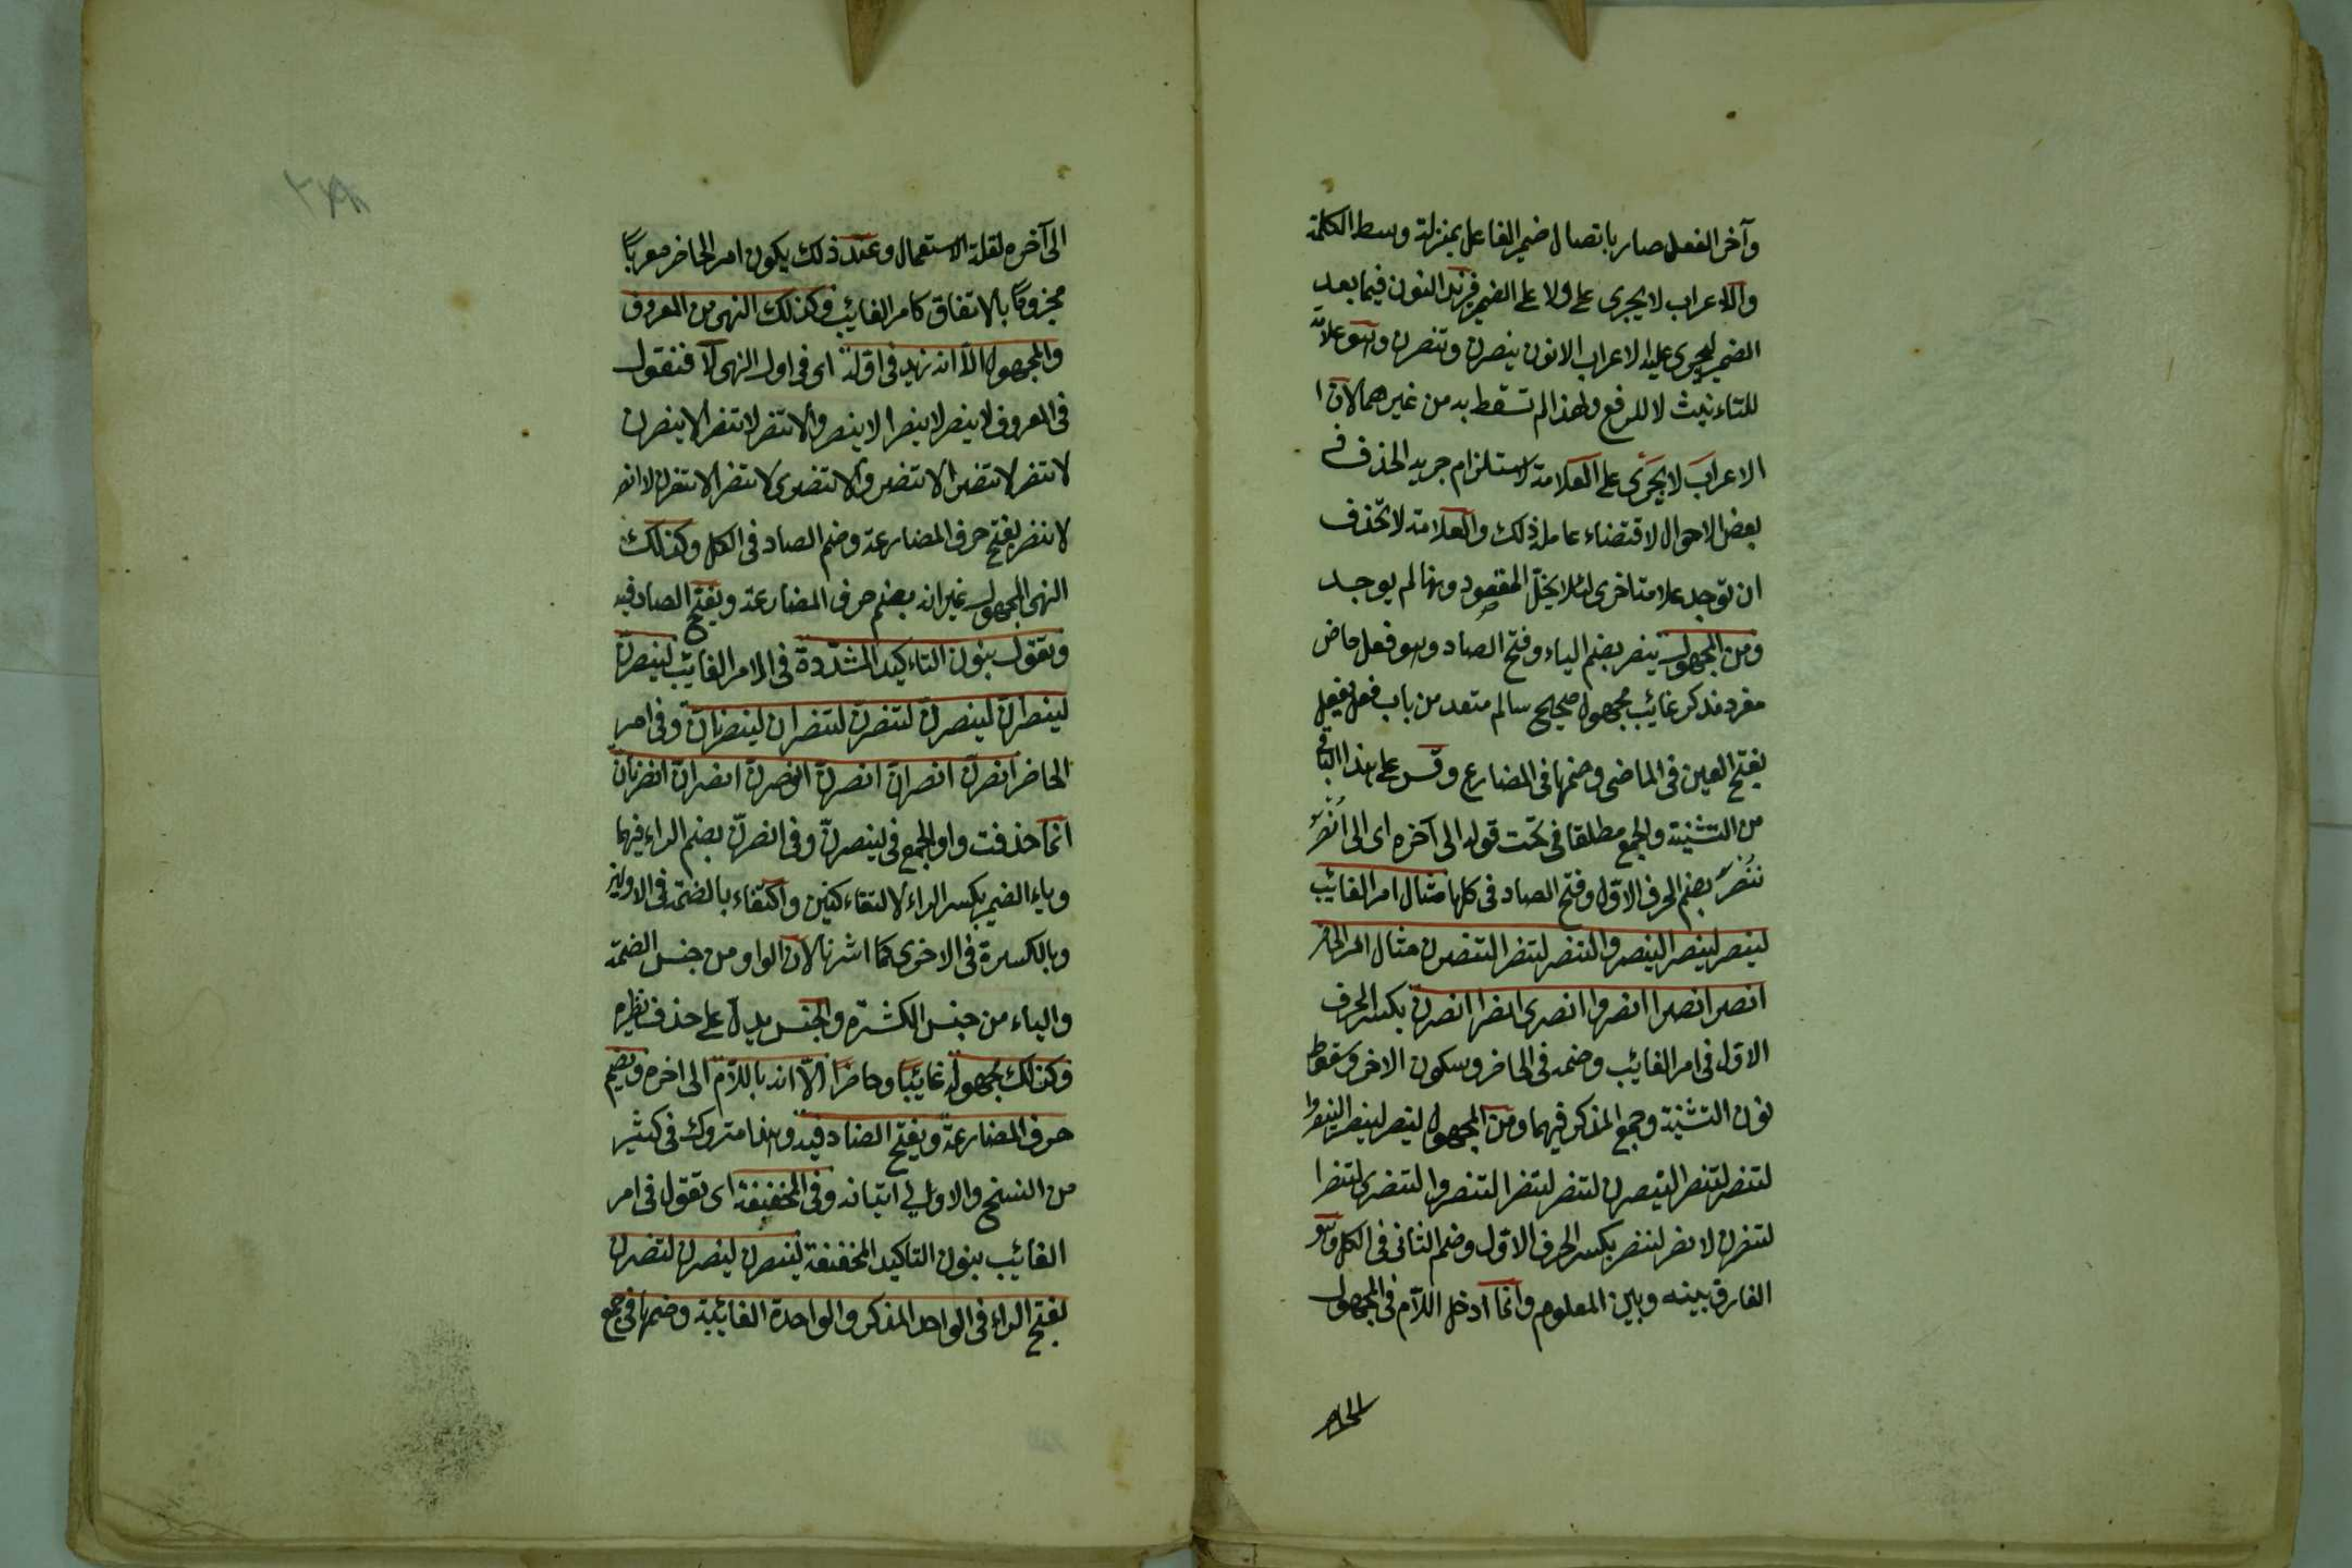 وآخر الفعل صار باتصال ضمير الفاعل بمنزلة وسط الكلمة
والاعراب لا يجرى على ولا على الضمير فزيد النون فيما بعد
الضمير ليجرى عليه الاعراب الا نون ينصرن وتنصرن وهو علامة
للتاءنيث لا للرفع ولهذا لم تسقط به من غيرهما لان
الاعراب لا يجرى على العلامة لاستلزام جريه الحذف فى
بعض الاحوال لاقتضاء عامل ذلك والعلامة لا تحذف
ان توجد علامة اخرى لئلا يخلّ المقصود وهنا لم يوجد
ومن المجهول ينصر بضم الياء وفتح الصاد وهو فعل ماض
مفرد مذكر غائب مجهول صحيح سالم متعد من باب فعل يفعل
بفتح العين فى الماضى وضمها فى المضارع وقس على هذا الباقى
من التثنية والجمع مطلقا فى تحت قوله الى آخره اى الى اُنْصَرُ
نُنْصَرُ بضم الحرف الاول وفتح الصاد فى كلها مثال امر الغائب
لينصر لينصرا لينصروا لتنصر لتنصرا لتنصرن مثال امر الحاضر
انصر انصرا انصروا انصرى انصرا انصرن بكسر الحرف
الاول فى امر الغائب وضمه فى الحاضر وسكون الاخر وسقوط
نون التثنية وجمع المذكر فيهما ومن المجهول لينصر لينصرا لينصروا
لتنصر لتنصرا لينصرن لتنصر لتنصرا لتنصروا لتنصرى لتنصرا
لتنصرن لانصر لننصر بكسر الحرف الاول وضم الثانى فى الكل وهو
الفارق بينه وبين المعلوم وانما ادخل اللام فى المجهول
الحاضر
٢٨٨
الى آخره لقلة الاستعمال وعند ذلك يكون امر الحاضر معربًا
مجزومًا بالاتفاق كامر الغائب وكذلك النهى من المعروف
والمجهول الا انه نزيد فى اوله اى فى اول النهى لا فنقول
فى المعروف لا ينصر لا ينصرا لا ينصروا لا تنصر لا تنصرا لا ينصرن
لا تنصر لا تنصرا لا تنصروا لا تنصرى لا تنصرا لا تنصرن لا انصر
لا ننصر بفتح حرف المضارعة وضم الصاد فى الكل وكذلك
النهى المجهول غير انه بضم حرف المضارعة وبفتح الصاد فيه
وتقول بنون التاءكيد المشدّدة فى الامر الغائب لينصرنّ
لينصرانّ لينصرنّ لتنصرنّ لتنصرانّ لينصرنانّ وفى امر
الحاضر انصرنّ انصرانّ انصرنّ انصرنّ انصرانّ انصرنانّ
انما حذفت واو الجمع فى لينصرنّ وفى انصرنّ بضم الراء فيهما
وياء الضمير بكسر الراء لالتقاء كنين واكتفاء بالضمة فى الاولين
وبالكسرة فى الاخرى كما اشرنا لان الواو من جنس الضمة
والياء من جنس الكسرة والجنس يدل على حذف نظيره
وكذلك مجهوله غائبًا وحاضرًا الّا انه باللّام الى اخره ويضم
حرف المضارعة ويفتح الصاد فيه وهنا متروك فى كثير
من النسخ والاولى اتيانه وفى المخففة اى تقول فى امر
الغائب بنون التاكيد المخففة لينصرن لينصرن لتنصرن
بفتح الراء فى الواحد المذكر والواحدة الغائبة وضمها فى جمع